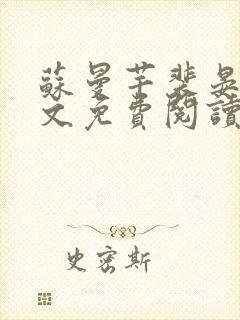 蘇曼芊裴晏
文免費閱讀
史密斯